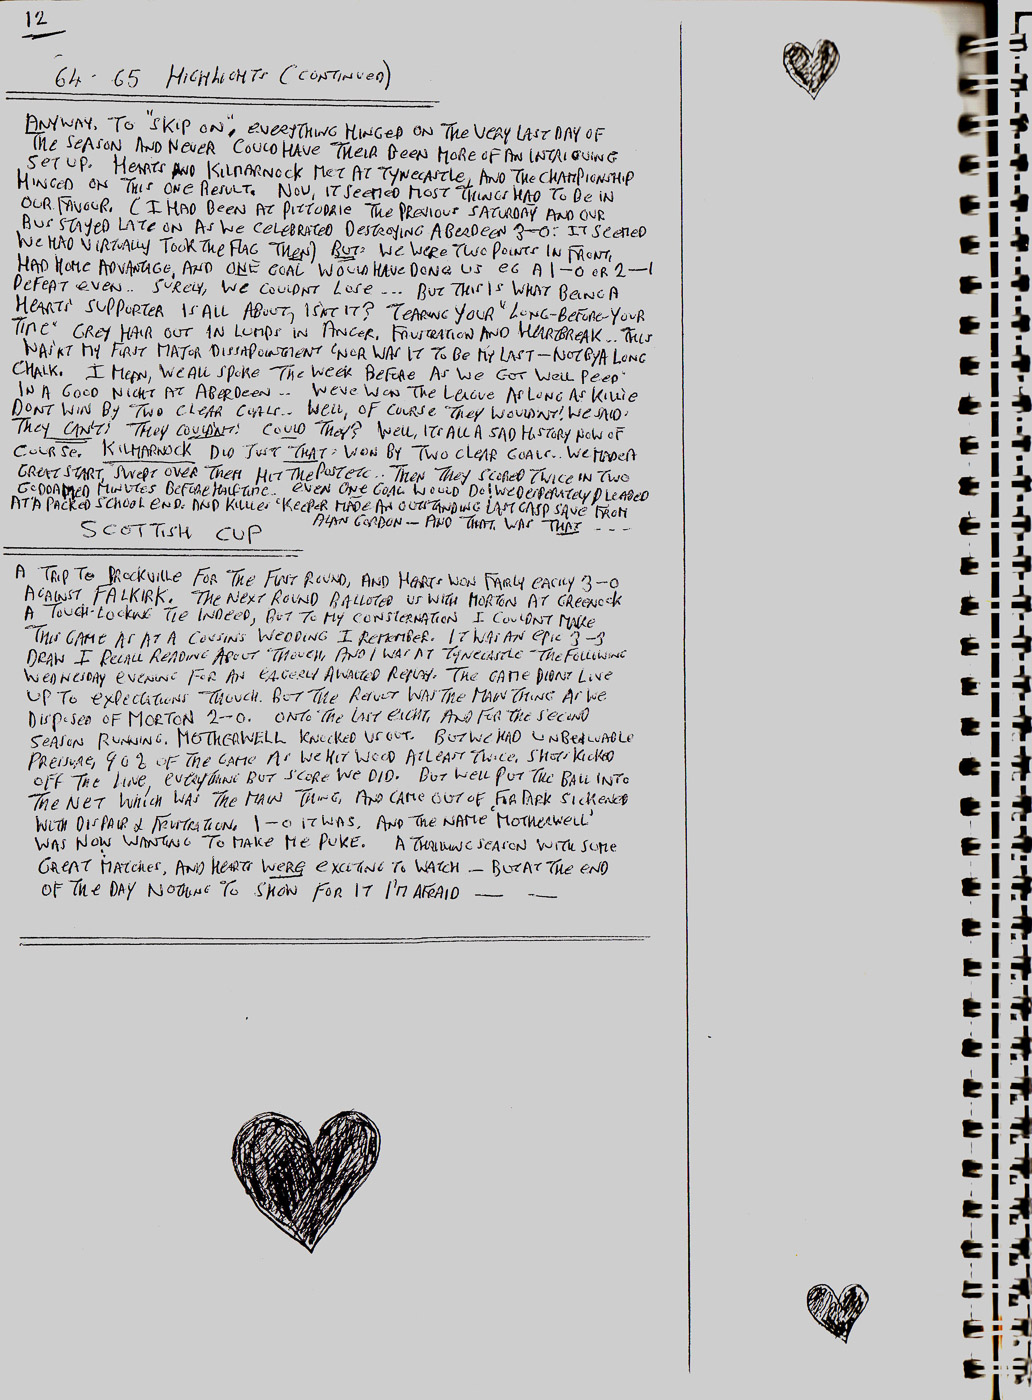 12
64-65 HIGHLIGHTS (CONTINUED)
ANYWAY. TO "SKIP ON", EVERYTHING HINGED ON THE VERY LAST DAY OF
THE SEASON AND NEVER COULD HAVE THEIR BEEN MORE OF AN INTRIGUING
SET UP. HEARTS AND KILMARNOCK MET AT TYNECASTLE, AND THE CHAMPIONSHIP
HINGED ON THIS ONE RESULT. NOW, IT SEEMED MOST THINGS HAD TO BE IN
OUR FAVOUR. (I HAD BEEN AT PITTODRIE THE PREVIOUS SATURDAY AND OUR
BUS STAYED LATE ON AS WE CELEBRATED DESTROYING ABERDEEN 3-0: IT SEEMED
WE HAD VIRTUALLY TOOK THE FLAG THEN) BUT: WE WERE TWO POINTS IN FRONT,
HAD HOME ADVANTAGE, AND ONE GOAL WOULD HAVE DONE US EG A 1-0 OR 2-1
DEFEAT EVEN.. SURELY, WE COULDNT LOSE --- BUT THIS IS WHAT BEING A
HEARTS SUPPORTER IS ALL ABOUT, ISN'T IT? TEARING YOUR "LONG-BEFORE-YOUR
TIME" GREY HAIR OUT IN LUMPS IN ANGER, FRUSTRATION AND HEARTBREAK... THIS
WASN'T MY FIRST MAJOR DISSAPOINTMENT 'NOR WAS IT TO BE MY LAST - NOT BY A LONG
CHALK. I MEAN, WE ALL SPOKE THE WEEK BEFORE AS WE GOT WELL PEED
IN A GOOD NIGHT AT ABERDEEN -- WEVE WON THE LEAGUE AS LONG AS KILLIE
DONT WIN BY TWO CLEAR GOALS.. WELL, OF COURSE THEY WOULDNT! WE SAID:
THEY CAN'T! THEY COULDN'T! COULD THEY? WELL, ITS ALL A SAD HISTORY NOW OF
COURSE. KILMARNOCK DID JUST THAT: WON BY TWO CLEAR GOALS.. WE MADE A
GREAT START, SWEPT OVER THEM HIT THE POST ETC.. THEN THEY SCORED TWICE IN TWO
GODDAMED MINUTES BEFORE HALFTIME.. EVEN ONE GOAL WOULD DO! WE DESPERATELY PLEADED
AT A PACKED SCHOOL END. AND KILLIES 'KEEPER MADE AN OUTSTANDING LAST GASP SAVE FROM
ALAN GORDON - AND THAT. WAS THAT ---
SCOTTISH CUP
A TRIP TO BROCKVILLE FOR THE FIRST ROUND, AND HEARTS WON FAIRLY EASILY 3-0
AGAINST FALKIRK. THE NEXT ROUND BALLOTED US WITH MORTON AT GREENOCK
A TOUGH-LOOKING TIE INDEED, BUT TO MY CONSTERNATION I COULDN'T MAKE
THIS GAME AS AT A COUSIN'S WEDDING I REMEMBER. IT WAS AN EPIC 3-3
DRAW I RECALL READING ABOUT THOUGH, AND I WAS AT TYNECASTLE THE FOLLOWING
WEDNESDAY EVENING FOR AN EAGERLY AWAITED REPLAY. THE GAME DIDNT LIVE
UP TO EXPECTATIONS THOUGH. BUT THE RESULT WAS THE MAIN THING AS WE
DISPOSED OF MORTON 2-0. ONTO THE LAST EIGHT, AND FOR THE SECOND
SEASON RUNNING. MOTHERWELL KNOCKED US OUT. BUT WE HAD UNBEARABLE
PRESSURE, 90% OF THE GAME AS WE HIT WOOD AT LEAST TWICE, SHOTS KICKED
OFF THE LINE, EVERYTHING BUT SCORE WE DID. BUT WELL PUT THE BALL INTO
THE NET WHICH WAS THE MAIN THING, AND CAME OUT OF FIR PARK SICKENED
WITH DISPAIR & FRUSTRATION. 1-0 IT WAS. AND THE NAME 'MOTHERWELL'
WAS NOW WANTING TO MAKE ME PUKE. A THRILLING SEASON WITH SOME
GREAT MATCHES, AND HEARTS WERE EXCITING TO WATCH - BUT AT THE END
OF THE DAY NOTHING TO SHOW FOR IT I'M AFRAID — —